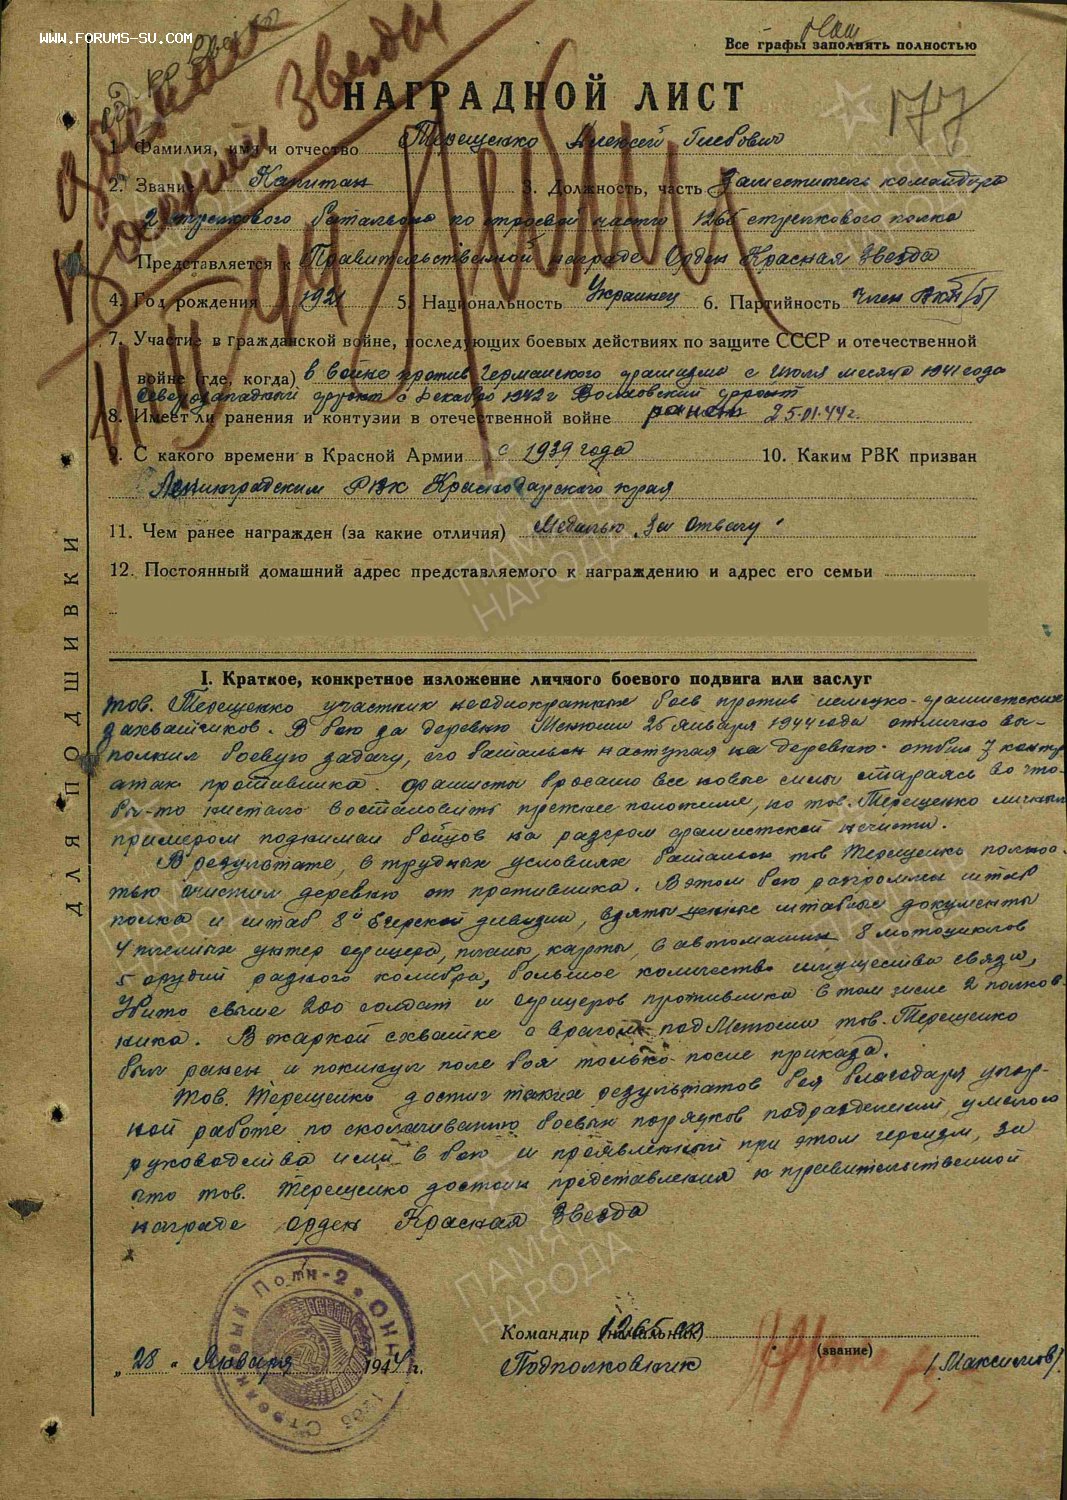 WWW.FORUMS-SU.COM
Все графы заполнять полностью
НАГРАДНОЙ ЛИСТ
177
1. Фамилия, имя и отчество Терещенко Алексей Глебович
2. Звание Капитан 3. Должность, часть Заместитель командира
2 стрелкового батальона по строевой части 1266 стрелкового полка
Представляется к Правительственной награде Орден Красная Звезда
4. Год рождения 1921 5. Национальность Украинец 6. Партийность член ВКП(б)
7. Участие в гражданской войне, последующих боевых действиях по защите СССР и отечественной
войне (где, когда) в войне против Германского фашизма с Июля месяца 1941 года
Северозападный фронт с декабря 1942 г Волховский фронт
8. Имеет ли ранения и контузии в отечественной войне ранен 25.01.44 г.
9. С какого времени в Красной Армии с 1939 года 10. Каким РВК призван
Ленинградским РВК Краснодарского края
11. Чем ранее награжден (за какие отличия) Медалью "За Отвагу"
12. Постоянный домашний адрес представляемого к награждению и адрес его семьи
I. Краткое, конкретное изложение личного боевого подвига или заслуг
тов. Терещенко участник неоднократных боев против немецко-фашистских
захватчиков. В бою за деревню 25 января 1944 года отлично вы-
полнил боевую задачу, его батальон наступая на деревню отбил 7 контр
атак противника. фашисты бросали все новые силы стараясь во что-
бы-то нистало востановить прежнее положение, но тов. Терещенко личным
примером поднимал бойцов на разгром фашистской нечисти.
В результате, в трудных условиях батальон тов Терещенко полнос-
тью очистил деревню от противника. В этом бою разгромлен штаб
полка и штаб 8й Егерской дивизии, взяты ценные штабные документы
4 пленных унтер офицера, планы, карты, 6 автомашин 8 мотоциклов
5 орудий разного калибра, большое количество имущества связи,
Убито свыше 200 солдат и офицеров противника в том числе 2 полков-
ника. В жаркой схватке с врагом под тов. Терещенко
был ранен и покинул поле боя только после приказа.
Тов. Терещенко достиг таких результатов боя благодаря упор-
ной работе по сколачиванию боевых порядков подразделений, умелого
руководства ими в бою и проявленный при этом героизм, за
что тов. Терещенко достоин представления к правительственной
награде орден Красная Звезда
Командир (начальник) 1265 сп
(звание)
Подполковник /Максимов/
„28" Января 1944 г.
ДЛЯ ПОДШИВКИ
ПАМЯТЬ НАРОДА